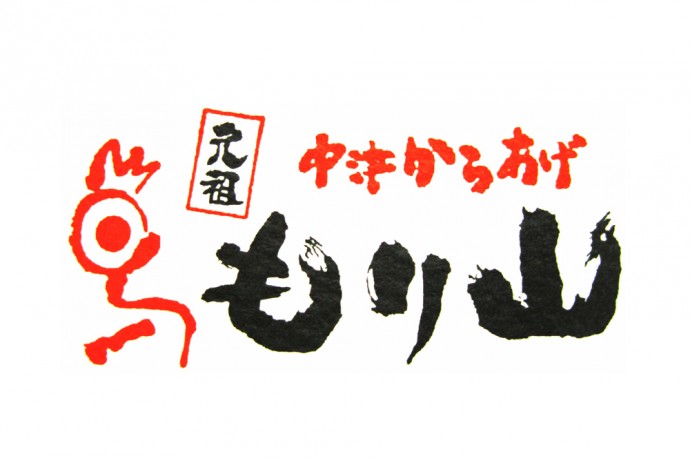 元祖
中津からあげ
もり山